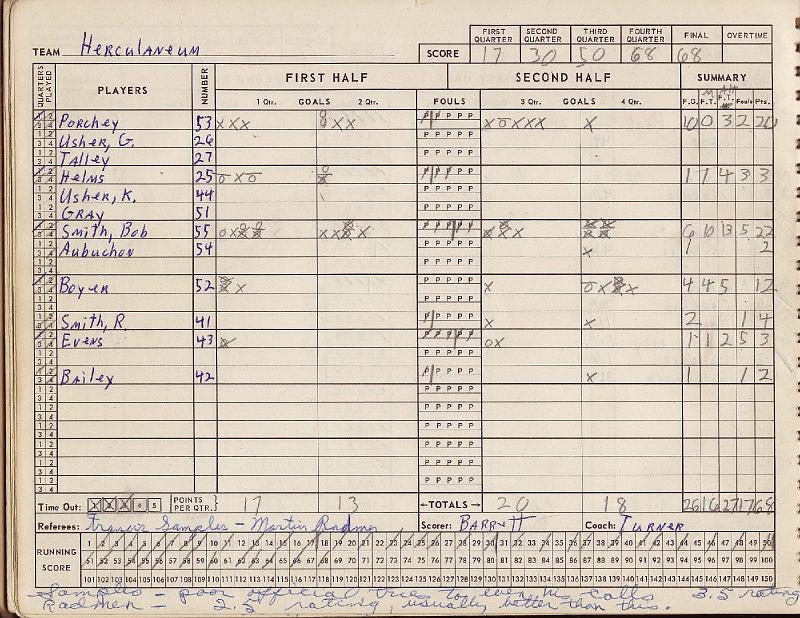 FIRST QUARTER SECOND QUARTER THIRD QUARTER FOURTH QUARTER FINAL OVERTIME
TEAM Herculaneum SCORE 17 30 50 68 68
QUARTERS PLAYED PLAYERS NUMBER FIRST HALF SECOND HALF SUMMARY
1 Qtr. GOALS 2 Qtr. FOULS 3 Qtr. GOALS 4 Qtr. F.G. F.T. F.T. Fouls Pts.
Porchey 53 xxx xx PPPPP xoxxx x 10 0 3 2 20
Usher, G. 26 PPPPP
Talley 27 PPPPP
Helms 25 oxo PPPPP 1 1 4 3 3
Usher, K. 44 PPPPP
GRAY 51 PPPPP
Smith, Bob 55 PPPPP 6 10 13 5 22
Aubuchon 54 PPPPP x 1 2
Boyer 52 PPPPP x 4 4 5 12
Smith, R. 41 PPPPP x x 2 1 4
Evens 43 PPPPP ox 1 1 2 5 3
Bailey 42 PPPPP x 1 1 2
Time Out: 1 2 3 4 5 POINTS PER QTR. 17 13 ←TOTALS→ 20 18 26 16 27 17 68
Referees: Francis Samples - Martin Radmer Scorer: BARRETT Coach: TURNER
1 2 3 4 5 6 7 8 9 10 11 12 13 14 15 16 17 18 19 20 21 22 23 24 25 26 27 28 29 30 31 32 33 34 35 36 37 38 39 40 41 42 43 44 45 46 47 48 49 50
RUNNING SCORE 51 52 53 54 55 56 57 58 59 60 61 62 63 64 65 66 67 68 69 70 71 72 73 74 75 76 77 78 79 80 81 82 83 84 85 86 87 88 89 90 91 92 93 94 95 96 97 98 99 100
101 102 103 104 105 106 107 108 109 110 111 112 113 114 115 116 117 118 119 120 121 122 123 124 125 126 127 128 129 130 131 132 133 134 135 136 137 138 139 140 141 142 143 144 145 146 147 148 149 150
Samples - poor official tries to even his calls 3.5 rating
Radmer - 2.5 rating, usually better than this.